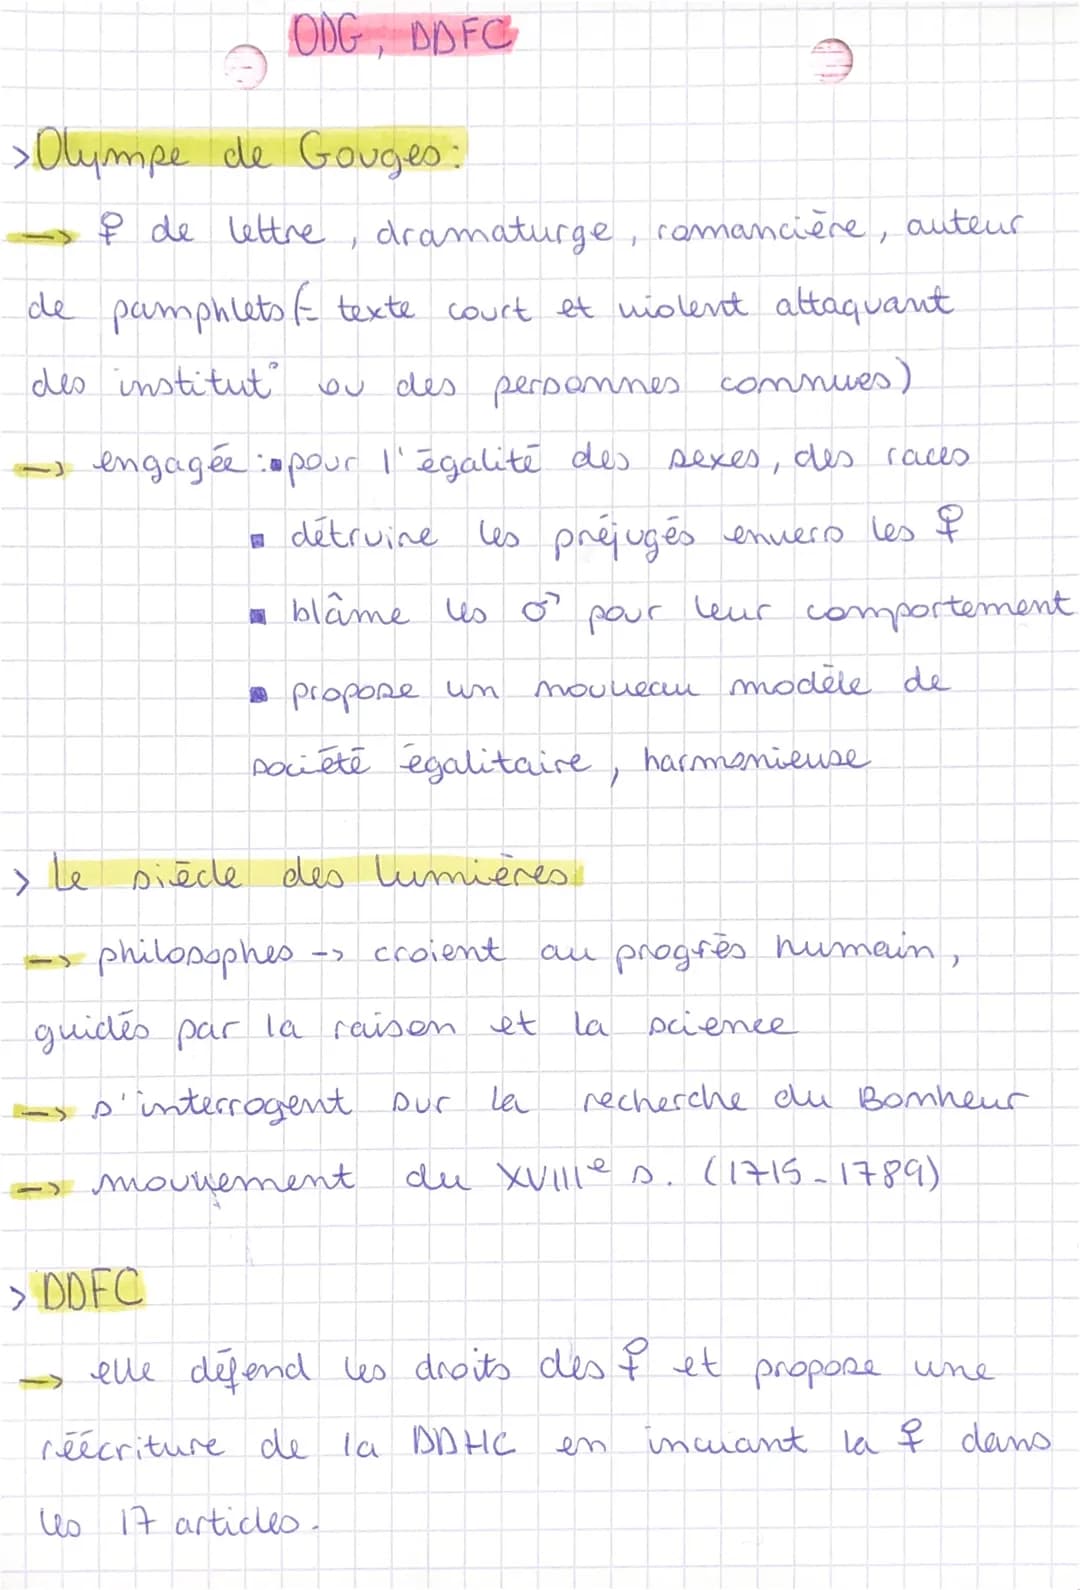 ODG, DDFC
> Olympe de Gouges :
→ ♀ de lettre, dramaturge, romancière, auteur
de pamphlets (= texte court et violent attaquant
des institut° ou des personnes connues)
→ engagée : ▪ pour l'égalité des sexes, des races
▪ détruire les préjugés envers les ♀
▪ blâme les ♂ pour leur comportement
▪ propose un nouveau modèle de
société égalitaire, harmonieuse
> Le siècle des lumières
→ philosophes -> croient au progrès humain,
guidés par la raison et la science
→ s'interrogent sur la recherche du Bonheur
→ mouvement du XVIIIe s. (1715-1789)
> DDFC
→ elle défend les droits des ♀ et propose une
réécriture de la DDHC en incluant la ♀ dans
les 17 articles.